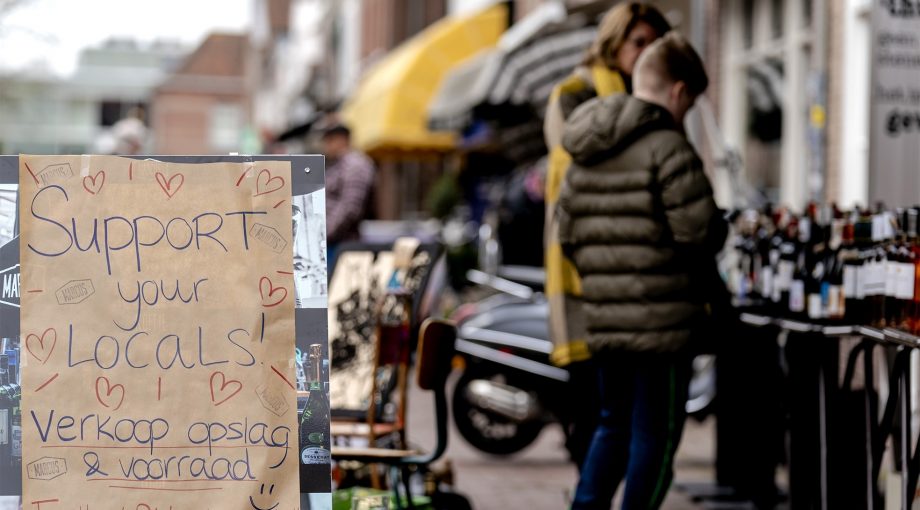 Support
your
Locals!
Verkoop opslag
& voorraad
MARCUS
MARCUS
MARCUS
MARCUS